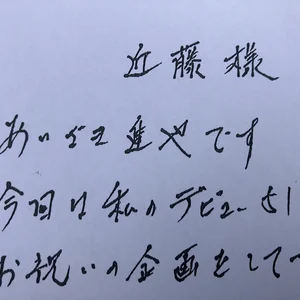 近藤様
あいざき進也です
今回は私のデビュー51
お祝いの企画をして